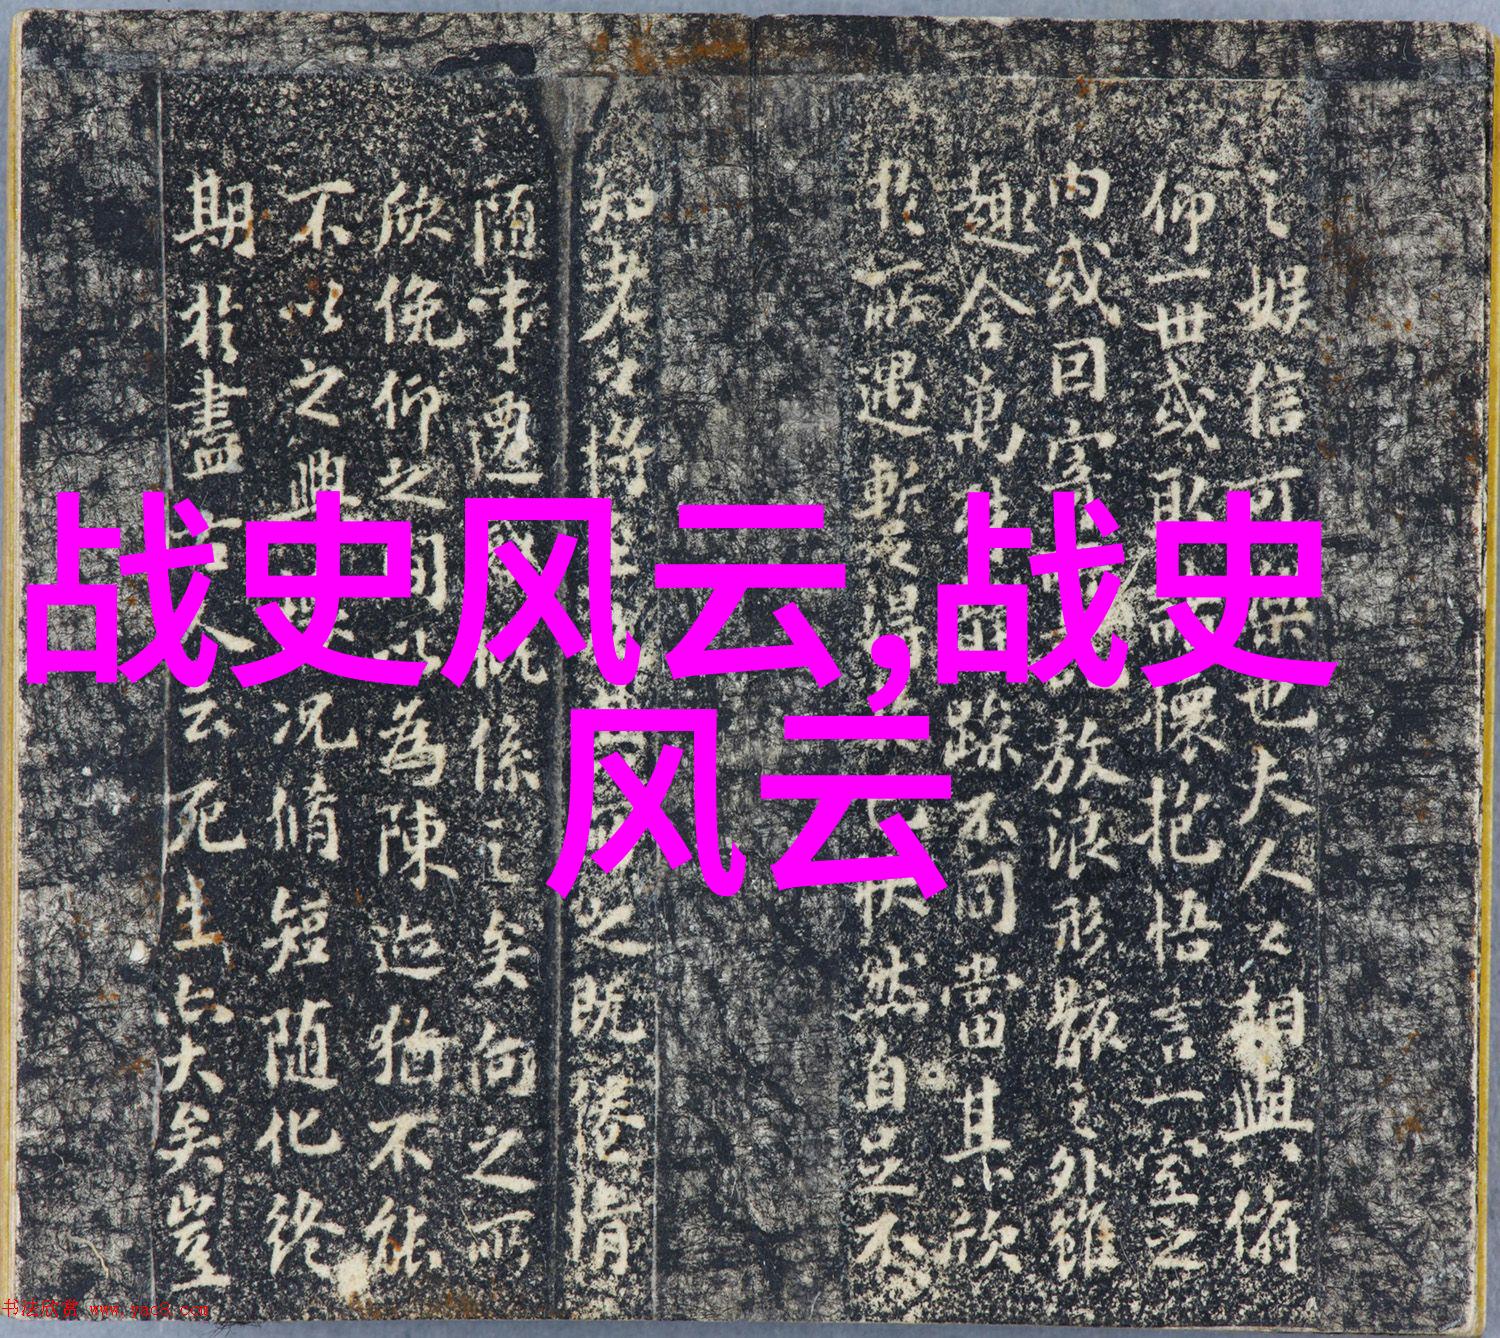 战史风云,战史
风云
之娱信可樂也夫人之相與俯
仰一世或取懷抱悟言一室之
内或因寄放浪形骸之外雖
趣舍萬躁不同當其欣
於所遇暫得快然自足不
知老之將之既惓情
随事遷慨係之矣向之所
欣俛仰之間以為陳迹猶不能
不以之興況脩短随化終
期於盡古人云死生亦大矣豈
书法欣赏 www.yac8.com